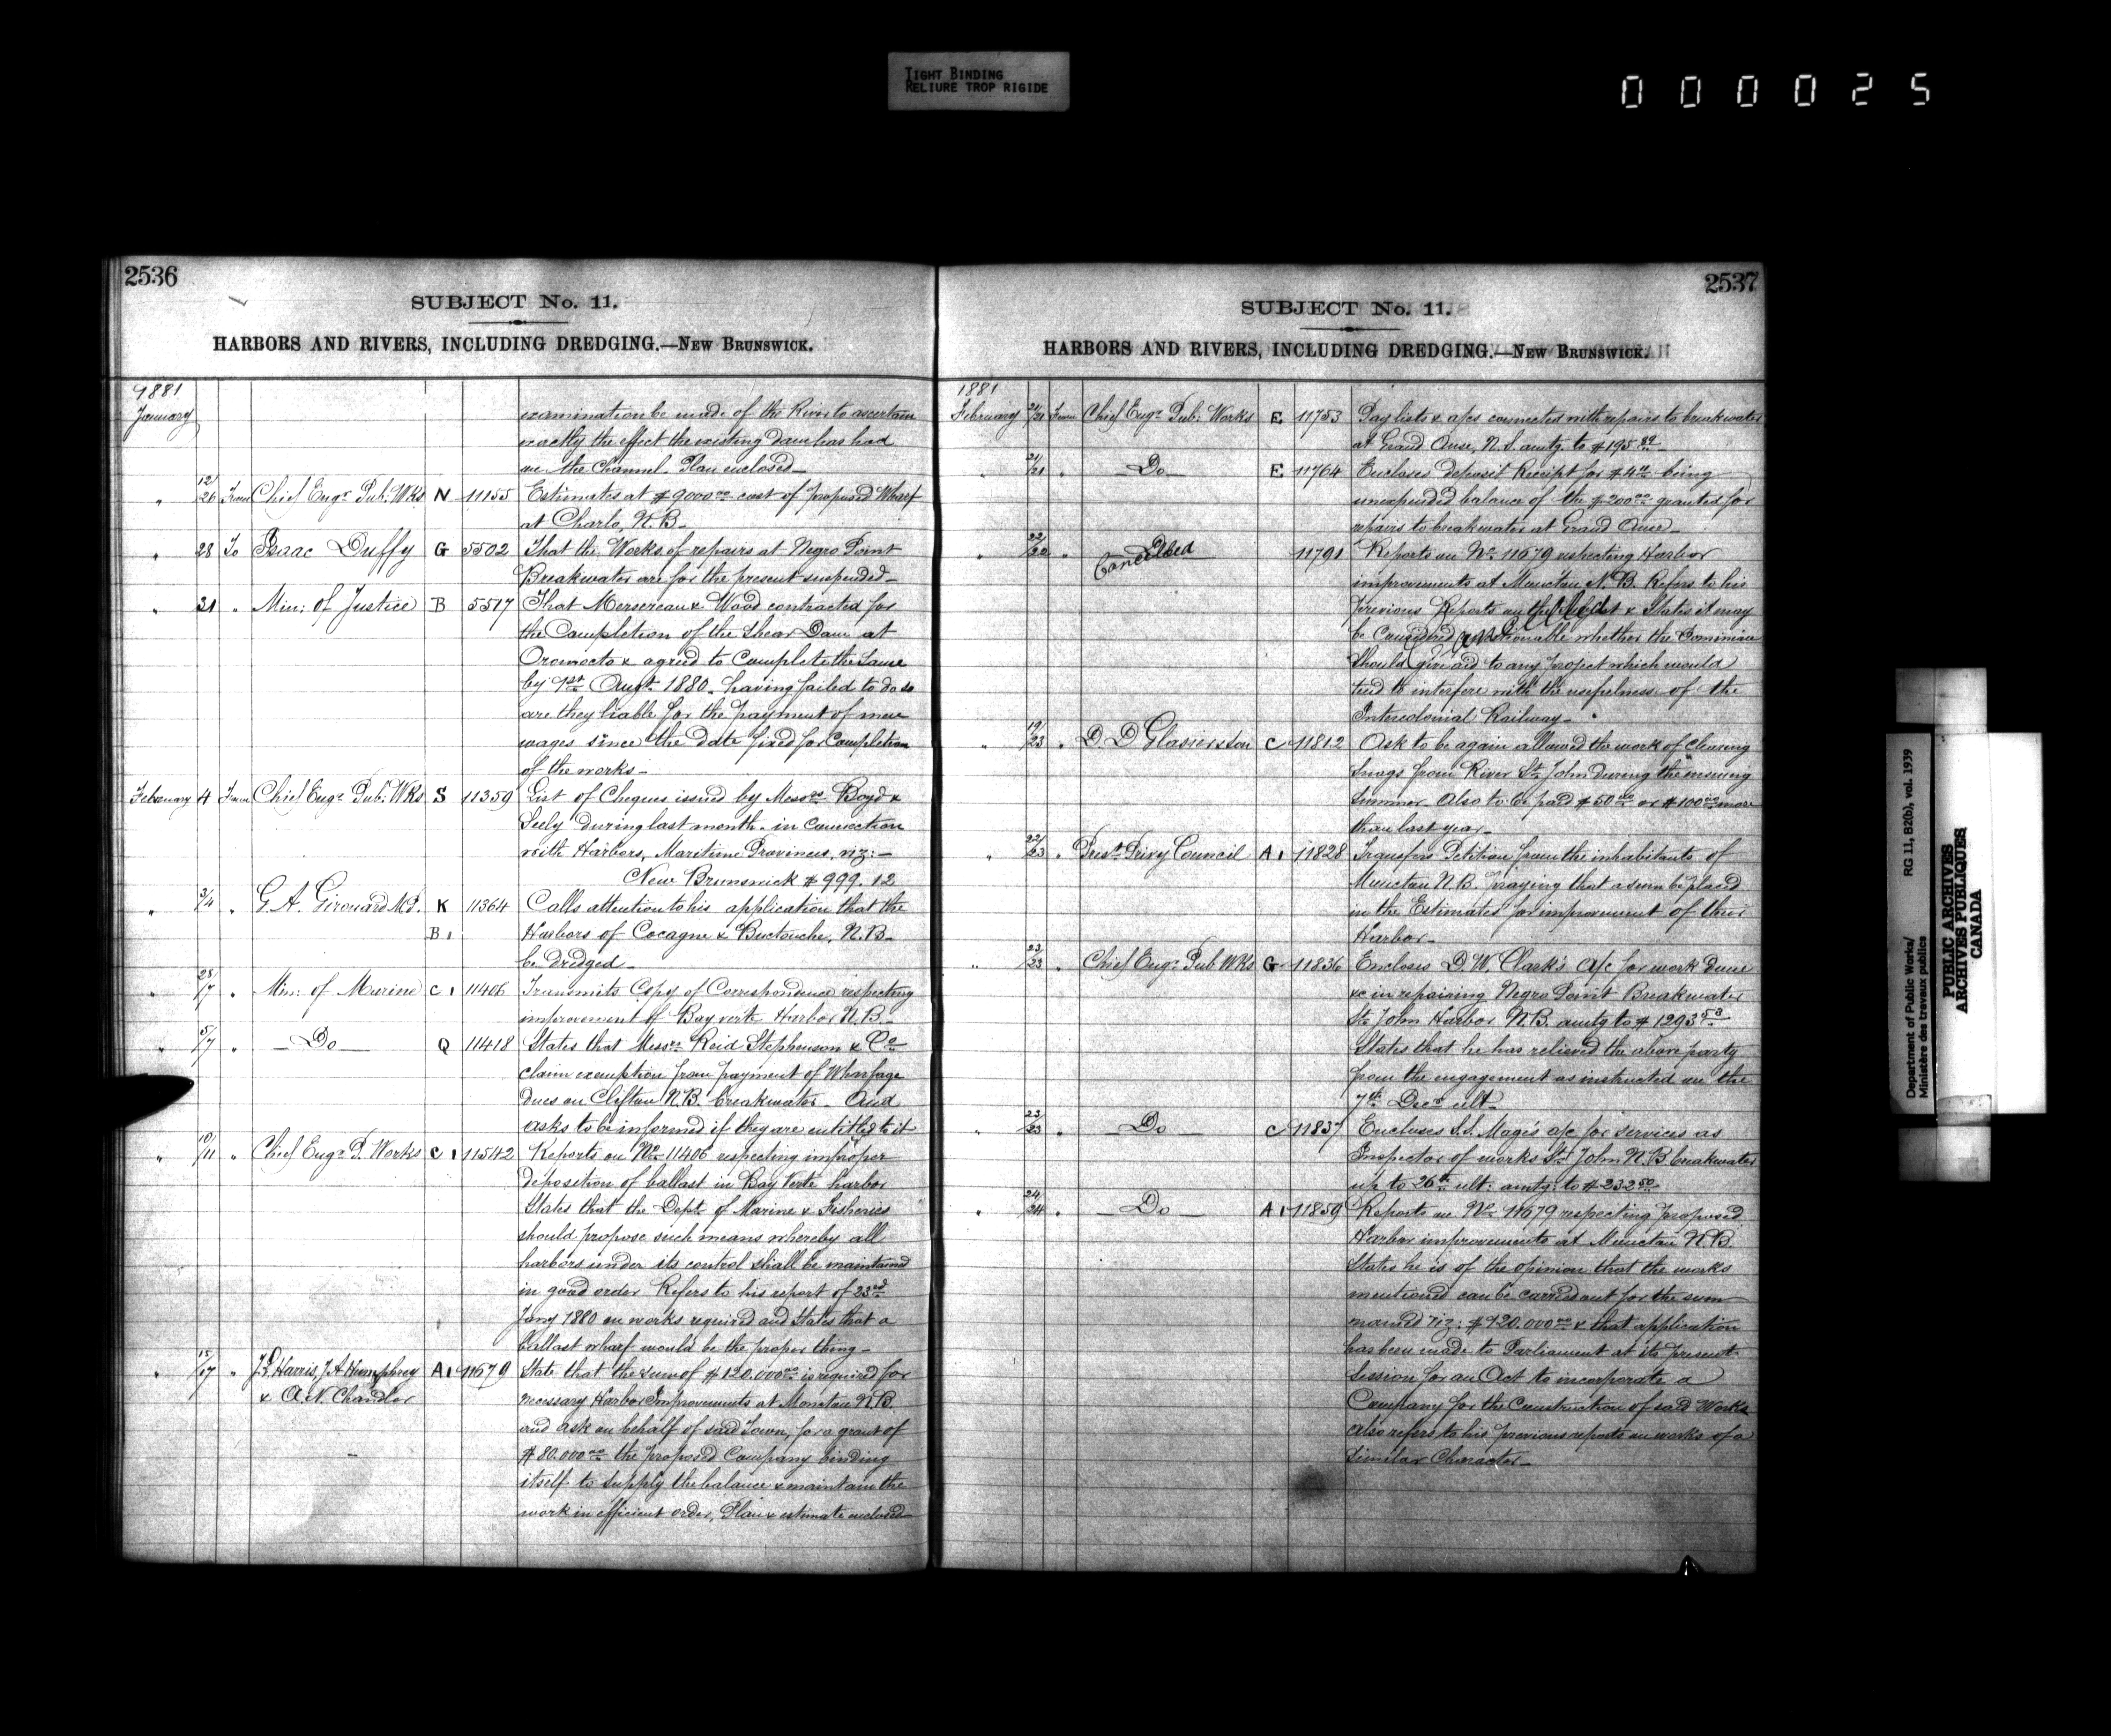 TIGHT BINDING
RELIURE TROP RIGIDE
000025
2536
SUBJECT No. 11.
HARBORS AND RIVERS, INCLUDING DREDGING.—NEW BRUNSWICK.
1881
January examination be made of the River to ascertain
exactly the effect the existing dam has had
on the Channel. Plan enclosed—
" 12/26 From Chief Engr. Pub: Wks N 11155 Estimates at $9000.00 cost of proposed Wharf
at Charlo, N.B—
" 28 To Isaac Duffy G 5502 That the Works of repairs at Negro Point
Breakwater are for the present suspended—
" 31 " Min: of Justice B 5517 That Mersereau & Wood contracted for
the Completion of the Shear Dam at
Oromocto & agreed to Complete the same
by 1st Augt. 1880. having failed to do so
are they liable for the payment of men
wages since the date fixed for Completion
of the works—
February 4 From Chief Engr. Pub: Wks S 11359 List of Cheques issued by Messrs Boyd &
Seely during last month. in Connection
with Harbors, Maritime Provinces, viz:—
New Brunswick $999.12
" 3/4 " G. A. Girouard M.P. K 11364 Calls attention to his application that the
B1 Harbors of Cocagne & Buctouche, N.B—
be dredged—
" 28/7 " Min: of Marine C1 11406 Transmits Copy of Correspondence respecting
improvement of Bay verte Harbor N.B—
" 5/7 " —Do— Q 11418 States that Messrs. Reid Stephenson & Co
claim exemption from payment of Wharfage
dues on Clifton N.B. breakwater— And
asks to be informed if they are entitled to it
" 10/11 " Chief Engr. P. Works C1 11542 Reports on No. 11406 respecting improper
deposition of ballast in Bay Verte harbor
States that the Dept. of Marine & Fisheries
should propose such means whereby all
harbors under its control shall be maintained
in good order Refers to his report of 23rd
Jany 1880 on works required and States that a
ballast wharf would be the proper thing—
" 15/17 " J. L. Harris, J. A. Humphrey A1 11679 State that the sum of $120.000.00 is required for
& A. N. Chandler necessary Harbor Improvements at Moncton N.B.
and ask on behalf of said Town, for a grant of
$80.000.00 the proposed Company binding
itself to supply the balance & maintain the
work in efficient order, Plan & estimate enclosed—
2537
SUBJECT No. 11.
HARBORS AND RIVERS, INCLUDING DREDGING.—NEW BRUNSWICK.
1881
February 21/21 From Chief Engr. Pub: Works E 11753 Pay lists & a/cs connected with repairs to breakwater
at Grand Anse, N.S. amtg. to $195.89—
" 21/21 " Do E 11764 Encloses deposit Receipt for $4.11 being
unexpended balance of the $200.00 granted for
repairs to breakwater at Grand Anse—
" 22/22 " Cancelled 11791 Reports on No. 11679 respecting Harbor
improvements at Moncton N.B. Refers to his
previous Reports on the subject & States it may
be Considered questionable whether the Dominion
Cancelled
should give aid to any project which would
tend to interfere with the usefulness of the
Intercolonial Railway—
" 19/23 " D. D. Glasier & Son C 11812 Ask to be again allowed the work of Clearing
Snags from River St. John during the ensuing
Summer Also to be paid $50.00 or $100.00 more
than last year—
" 22/23 " Prest. Privy Council A1 11828 Transfers Petition from the inhabitants of
Moncton N.B. praying that a sum be placed
in the Estimates for improvement of their
Harbor—
" 23/23 " Chief Engr. Pub Wks G 11836 Encloses D. W. Clark's A/c for work done
&c in repairing Negro Point Breakwater
St. John Harbor N.B. amtg to $1293.53
States that he has relieved the above party
from the engagement as instructed on the
7th Decr ult—
" 23/23 " Do C 11837 Encloses S.S. Mage's a/c for services as
Inspector of works St. John N.B breakwater
up to 26th ult: amtg: to $232.50
" 24/24 " Do A1 11859 Reports on No. 11679 respecting proposed
Harbor improvements at Moncton N.B.
States he is of the opinion that the works
mentioned can be carried out for the sum
named viz: $120.000.00 & that application
has been made to Parliament at its present
Session for an Act to incorporate a
Company for the Construction of said Works
also refers to his previous reports on works of a
similar Character—
Department of Public Works/ RG 11, B2(b), vol. 1939
Ministère des travaux publics
PUBLIC ARCHIVES
ARCHIVES PUBLIQUES
CANADA